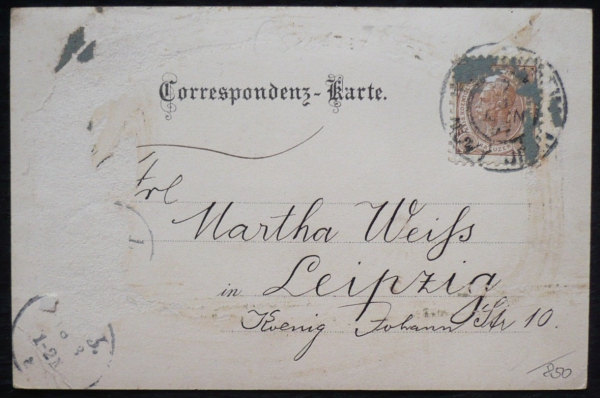 Correspondenz-Karte.
Frl
Martha Weiſs
in Leipzig
Koenig Johann Str 10.
1-2N
250